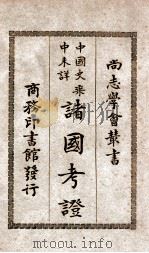 尚志學會叢書
中國史乘
中未詳
諸國考證
商務印書館發行
mtoou.info